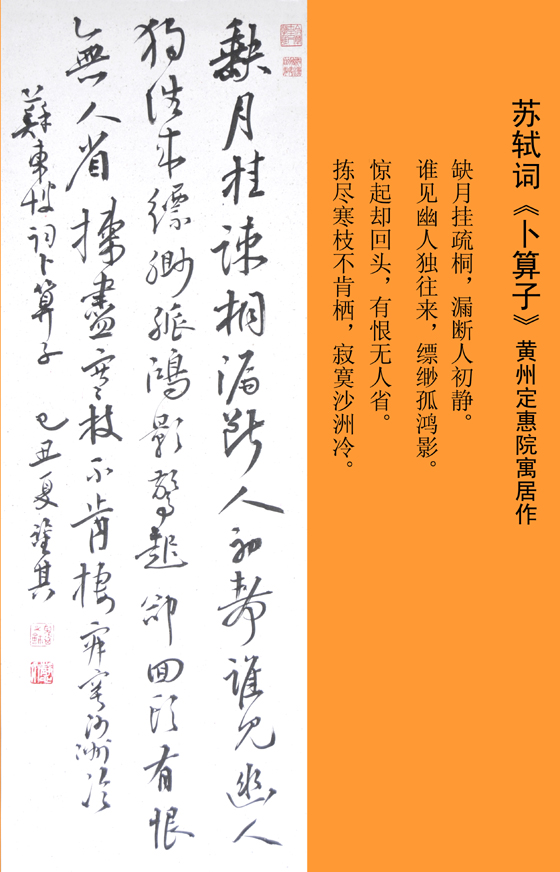 苏轼词《卜算子》黄州定惠院寓居作
缺月挂疏桐，漏断人初静。
谁见幽人独往来，缥缈孤鸿影。
惊起却回头，有恨无人省。
拣尽寒枝不肯栖，寂寞沙洲冷。
缺月挂疎桐漏斷人初靜誰見幽人
獨往来縹緲孤鴻影驚起卻回頭有恨
無人省揀盡寒枝不肯棲寂寞沙洲冷
蘇東坡詞卜算子 己丑夏